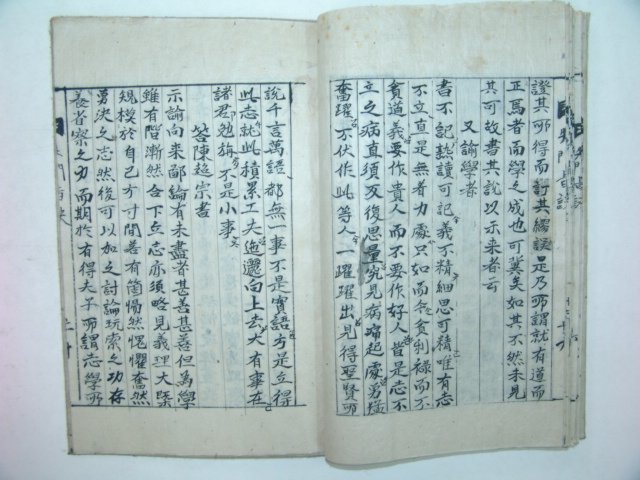 證其所得而訂其繆誤是乃所謂就有道而
正焉者而學之成也可冀矣如其不然未見
其可故書其說以示來者云
又諭學者
書不記熟讀可記義不精細思可精唯有志
不立直是無著力處只如而今貪利祿而不
貪道義要作貴人而不要作好人皆是志不
立之病直須反復思量究見病痛起處勇猛
奮躍不伏作此等人一躍躍出見得聖賢所
說千言萬語都無一事不是實語方是立得
此志就此積累工夫迤邐向上去大有事在
諸君勉旃不是小事
答陳超宗書
示諭向來鄙論有未盡者甚善甚善但為學
雖有階漸然合下立志亦須略見義理大槩
規模於自己方寸間若有箇惕然愧懼奮然
勇決之志然後可以加之討論玩索之功存
養省察之力而期於有得夫子所謂志學所